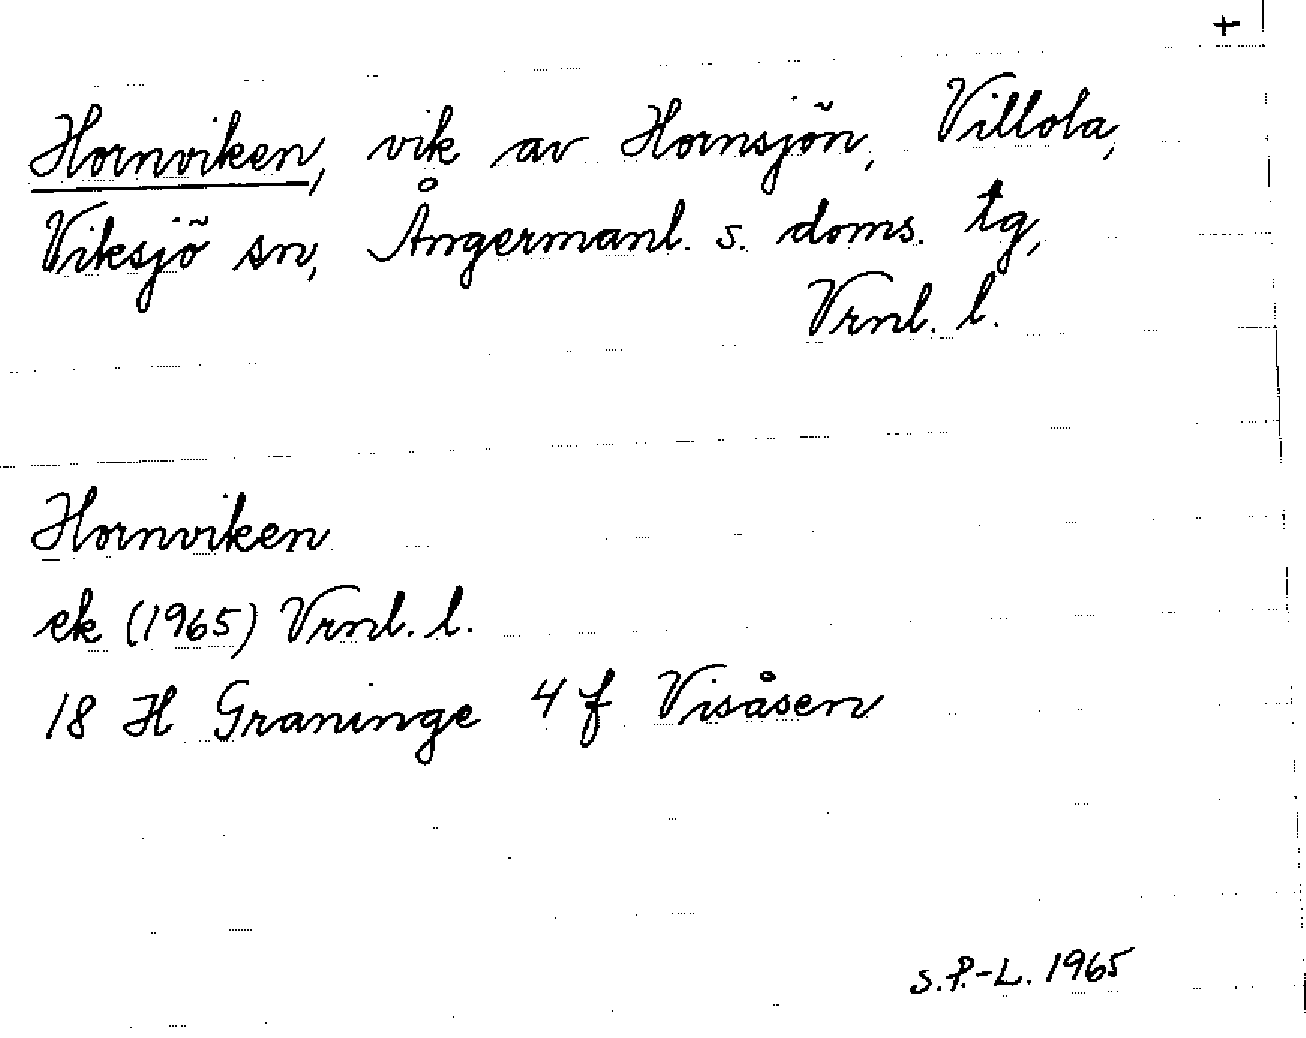 +
Hornviken, vik av Hornsjön, Villola,
Viksjö sn, Ångermanl. s. doms. tg,
Vrnl. l.
Hornviken
ek (1965) Vrnl. l.
18 H Graninge 4 f Visåsen
S.P.-L. 1965